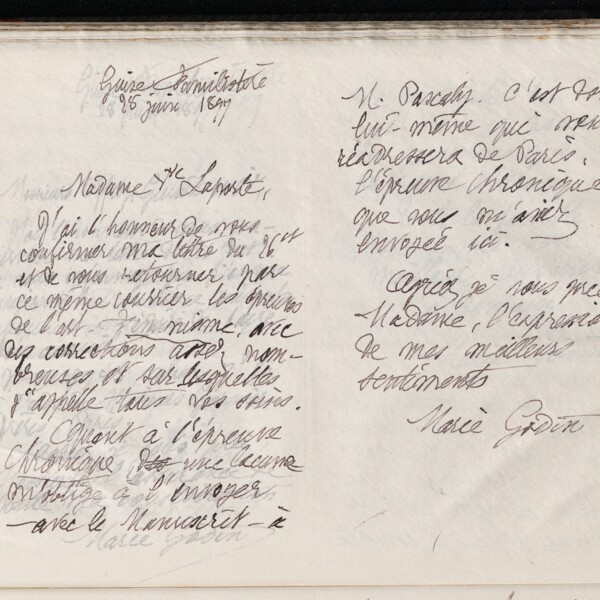 Guise Familistère
28 juin 1897
Madame Vve Laporte,
J'ai l'honneur de vous
confirmer ma lettre du 26 ct
et de vous retourner par
ce même courrier les épreuves
de l'art. Féminisme, avec
des corrections assez nom-
breuses et sur lesquelles
j'appelle tous vos soins.
Quant à l'épreuve
Chronique une lacune
m'oblige à l'envoyer
- avec le Manuscrit - à
M. Pascaly. C'est do
lui-même qui vous
réadressera de Paris,
l'épreuve Chronique
que vous m'aviez
envoyée ici.
Agréez je vous prie
Madame, l'expression
de mes meilleurs
sentiments
Marie Godin
Marie Godin